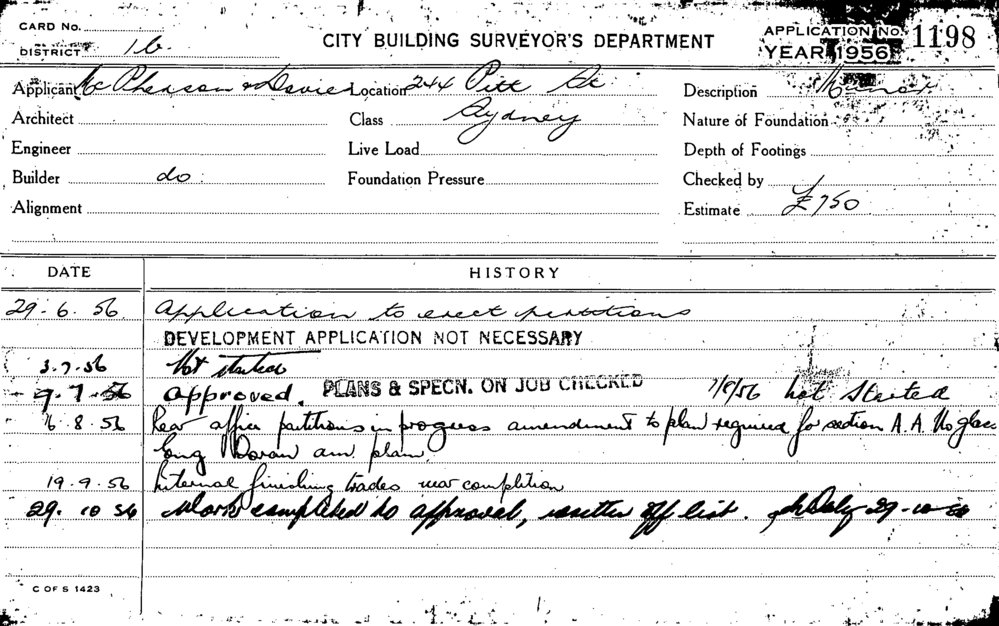 CARD No.
DISTRICT 16.
CITY BUILDING SURVEYOR'S DEPARTMENT
APPLICATION No. 1198
YEAR 1956
Applicant McPherson & Davies Location 244 Pitt St Description Minor
Architect Class Sydney Nature of Foundation
Engineer Live Load Depth of Footings
Builder do. Foundation Pressure Checked by
Alignment Estimate £750
DATE HISTORY
29.6.56 Application to erect partitions
DEVELOPMENT APPLICATION NOT NECESSARY
3.7.56 Not started
9.7.56 Approved. PLANS & SPECN. ON JOB CHECKED 7/8/56 not started
16.8.56 Rear office partitions in progress amendment to plan required for section A.A. No glass
plan.
19.9.56 Internal finishing trades near completion
29.10.56 Work completed to approval, written off list. Daly 29-10-56
C OF S 1423